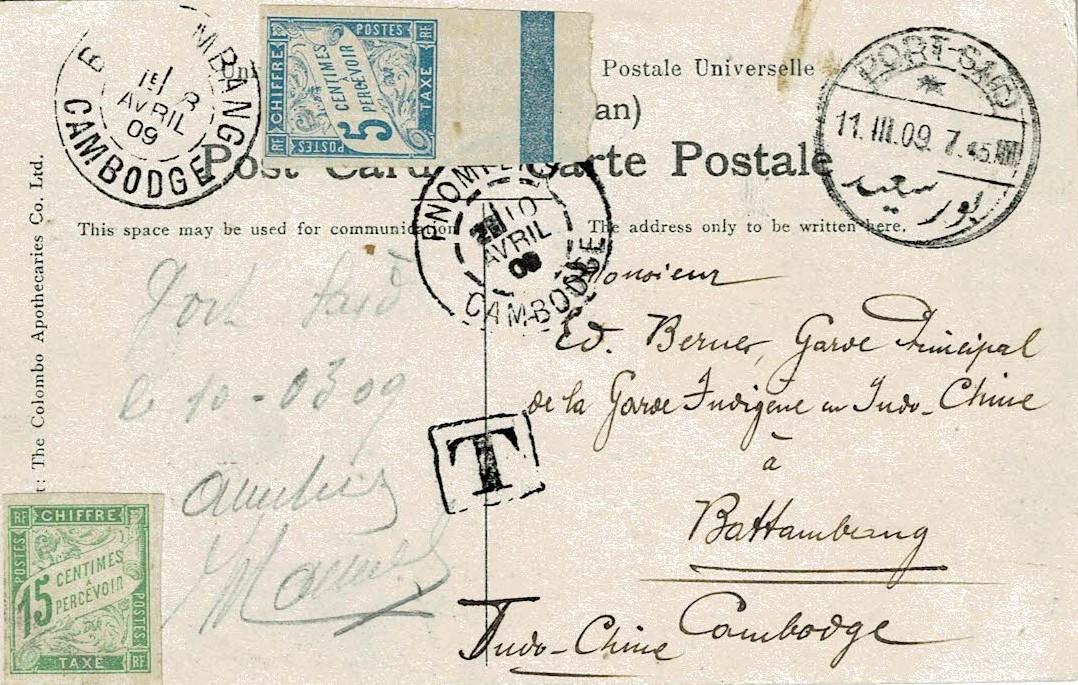 BATTAMBANG
AVRIL
09
CAMBODGE
RF CHIFFRE
POSTES RF
5 CENTIMES
À
PERCEVOIR
RF POSTES
TAXE
Postale Universelle
an)
Post Card Carte Postale
PORT-SAID
11.III.09. 7.45
بور سعيد
This space may be used for communication
The address only to be written here.
PNOMPENH
10
AVRIL
09
CAMBODGE
: The Colombo Apothecaries Co. Ltd.
Port Saïd
le 10-03 09
Monsieur
Ed. Bernes, Garde Principal
de la Garde Indigène en Indo-Chine
à
Battambang
Cambodge
Indo-Chine
T
RF CHIFFRE
POSTES
15 CENTIMES
À
PERCEVOIR
POSTES
TAXE RF